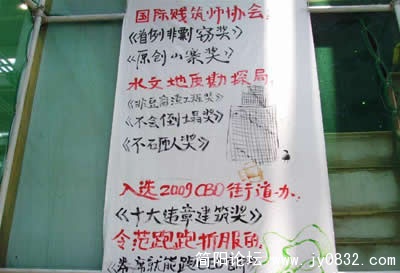 国际贱筑师协会
《首例非剽窃奖》
《原创山寨奖》
水文地质勘探局
《非豆腐渣工程奖》
《不会倒塌奖》
《不砸人奖》
入选2009CBD街道办
《十大违章建筑奖》
令范跑跑折服的
简阳论坛
www.jy0832.com